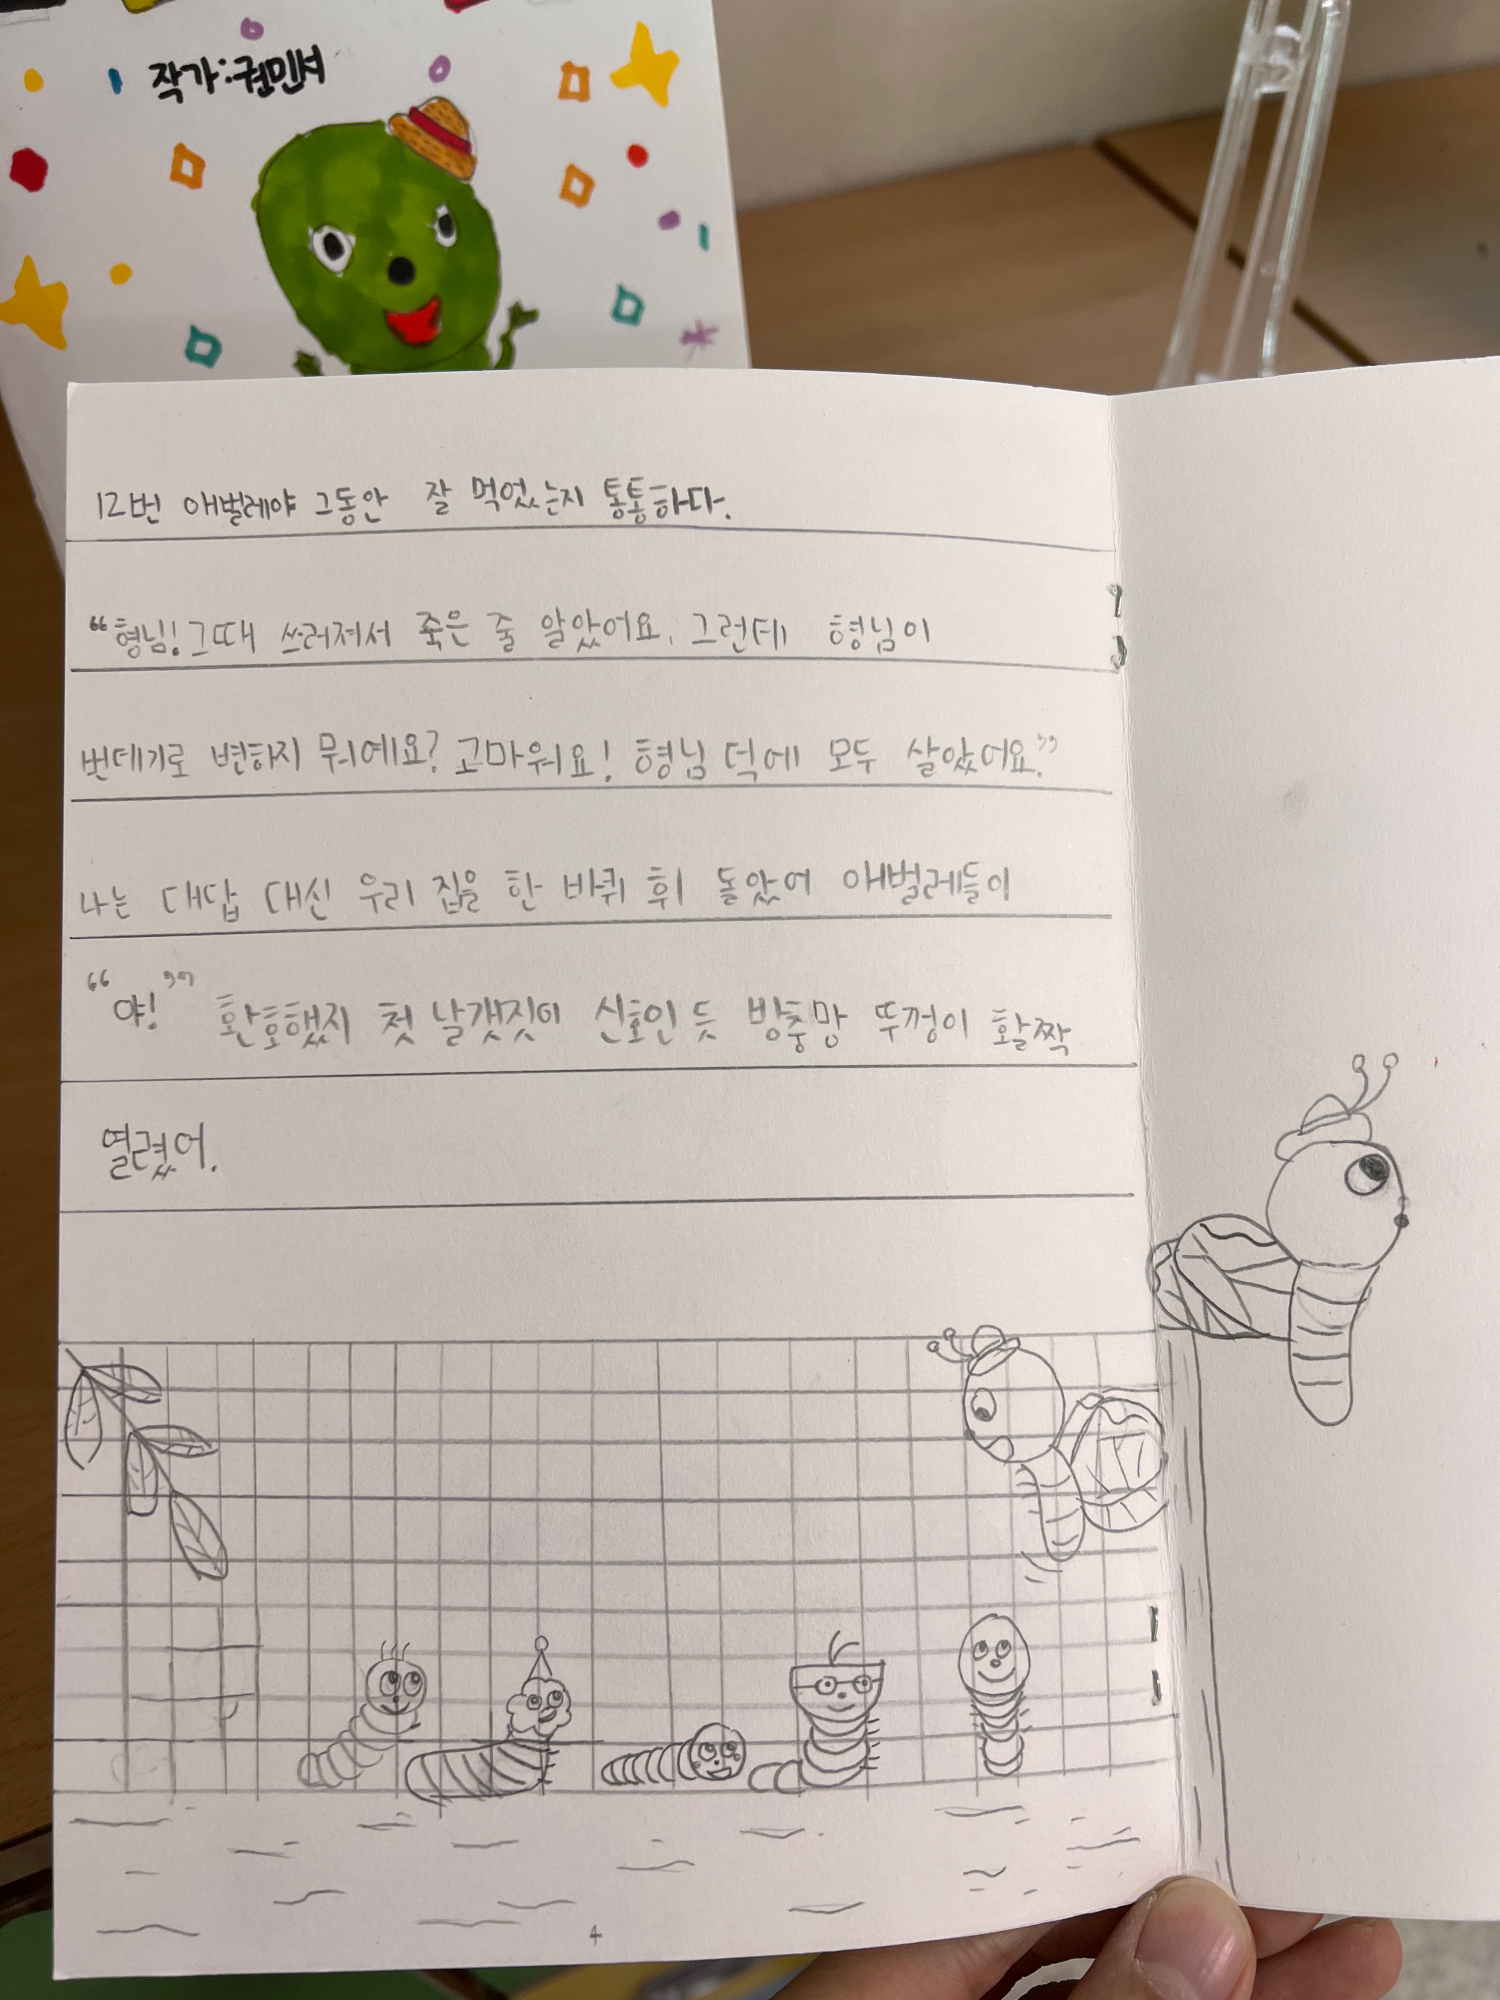 작가:권민서
12번 애벌레야 그동안 잘 먹었는지 통통하다.
“형님! 그때 쓰러져서 죽은 줄 알았어요. 그런데 형님이
번데기로 변하지 뭐에요? 고마워요! 형님 덕에 모두 살았어요.”
나는 대답 대신 우리 집을 한 바퀴 휘 돌았어 애벌레들이
“야!” 환호했지 첫 날갯짓이 신호인 듯 방충망 뚜껑이 활짝
열렸어.
4